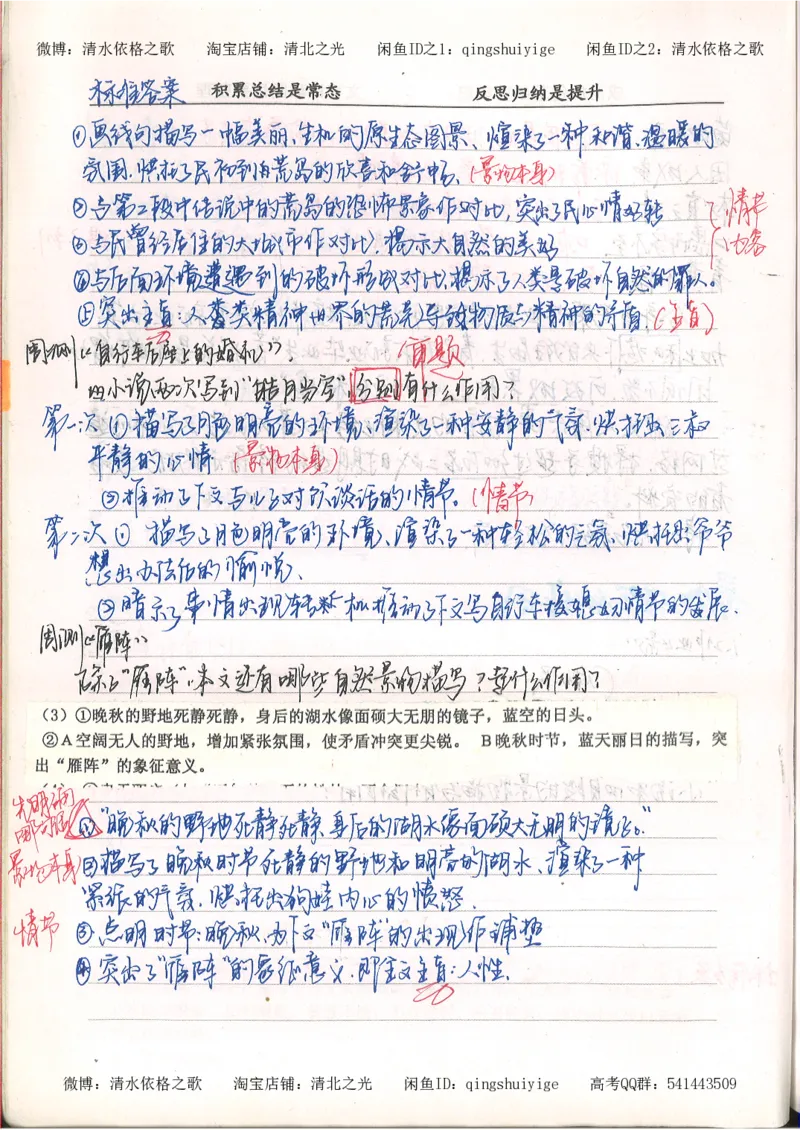 微博：清水依格之歌 淘宝店铺：清北之光 闲鱼ID之1：qingshuiyige 闲鱼ID之2：清水依格之歌
标准答案 积累总结是常态 反思归纳是提升
①画线句描写一幅美丽、生机的原生态图景、渲染了一种和谐、温暖的
氛围，烘托了民初到的荒岛的欣喜和舒畅。(景物本身)
②与第二段中传说中的荒岛的恐怖景象作对比，突出了民心情好转
情节
③与民曾经居住的大城市作对比，揭示大自然的美好
内容
④与后面环境遭遇到的破坏形成对比，揭示了人类是破坏自然的罪人。
⑤突出主旨：人类精神世界的荒芜导致物质与精神的矛盾。(主旨)
周测《自行车后座上的婚礼》 (审题)
四小说两次写到"皓月当空"，分别有什么作用？
第一次 ①描写了月色明亮的环境、渲染了一种安静的气氛，烘托出三叔
平静的心情 (景物本身)
②推动了下文与儿子对饮谈话的情节。(情节)
第二次 ① 描写了月色明亮的环境、渲染了一种轻松的气氛、烘托出爷爷
想出办法后的愉悦、
②暗示了事情出现转机推动了下文写自行车接媳妇情节的发展.
周测《雁阵》
除了"雁阵"，本文还有哪些自然景物描写？有什么作用？
（3）①晚秋的野地死静死静，身后的湖水像面硕大无朋的镜子，蓝空的日头。
②A空阔无人的野地，增加紧张氛围，使矛盾冲突更尖锐。 B晚秋时节，蓝天丽日的描写，突
出“雁阵”的象征意义。
①"晚秋的野地死静死静，身后的湖水像面硕大无朋的镜子。"
景物本身
②描写了晚秋时节死静的野地和明亮的湖水、渲染了一种
紧张的气氛，烘托出狗娃内心的愤怒.
情节
③点明时节：晚秋，为下文"雁阵"的出现作铺垫
④突出了"雁阵"的象征意义，即全文主旨：人性.
微博：清水依格之歌 淘宝店铺：清北之光 闲鱼ID：qingshuiyige 高考QQ群：541443509